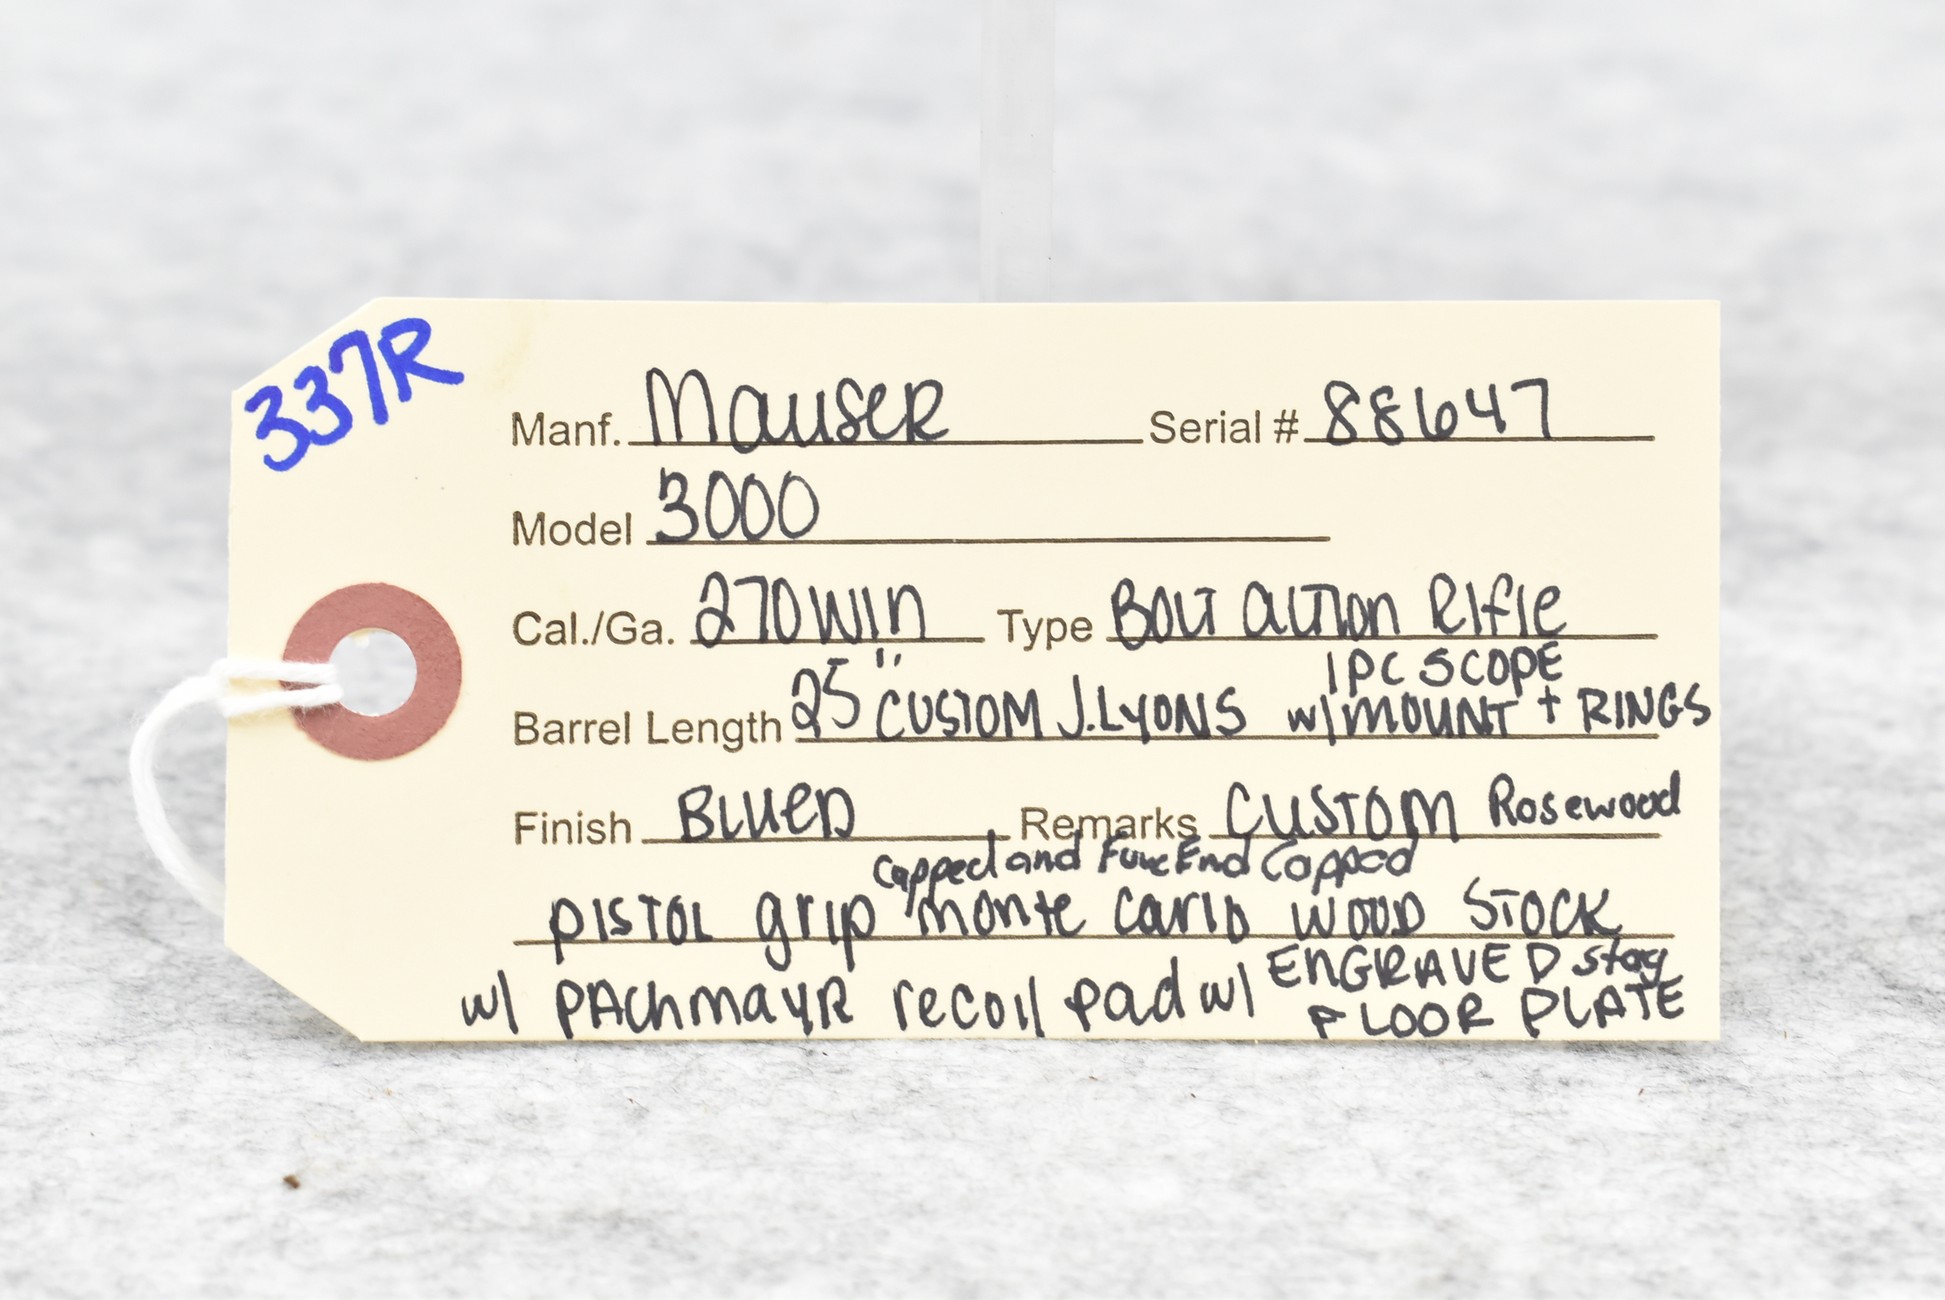 337R
Manf. Mauser Serial # 88647
Model 3000
Cal./Ga. 270 WIN Type Bolt Action Rifle
1 PC SCOPE
Barrel Length 25" CUSTOM J.LYONS w/ MOUNT + RINGS
Finish BLUED Remarks CUSTOM Rosewood
Capped and Fore End Capped
PISTOL grip monte carlo WOOD STOCK
ENGRAVED stag
w/ PAChmayR recoil pad w/ FLOOR PLATE